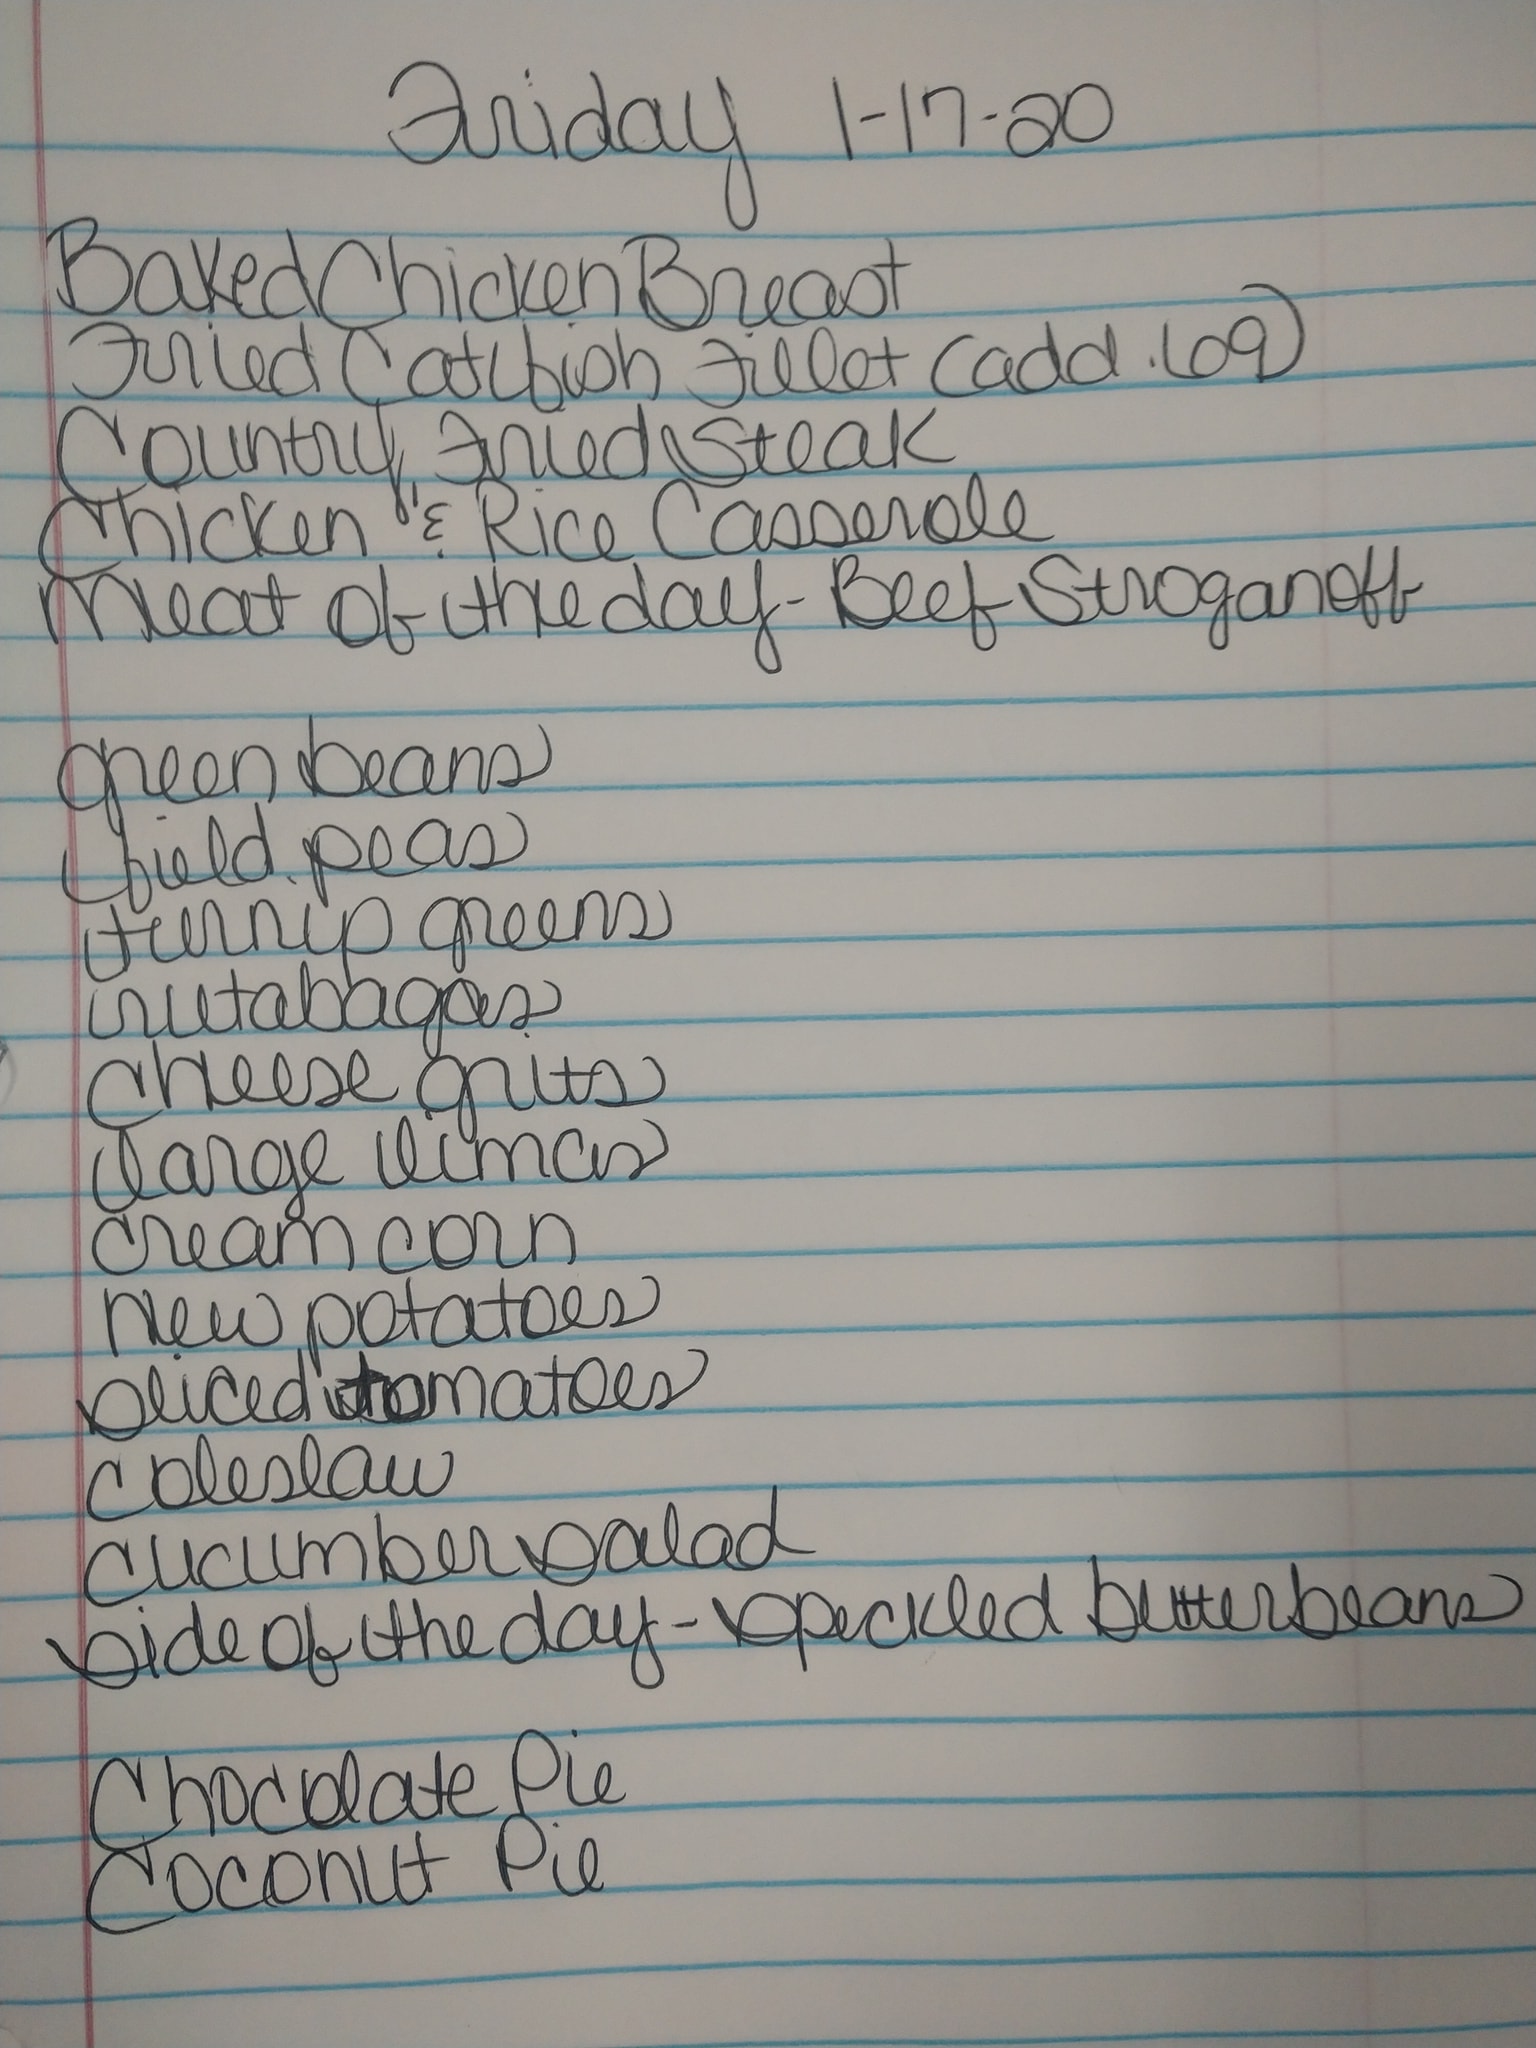 Friday 1-17-20
Baked Chicken Breast
Fried Catfish Fillet (add .69)
Country Fried Steak
Chicken & Rice Casserole
Meat of the day - Beef Stroganoff
green beans
field peas
turnip greens
rutabagas
cheese grits
large limas
cream corn
new potatoes
sliced tomatoes
coleslaw
cucumber salad
side of the day - speckled butterbeans
Chocolate Pie
Coconut Pie